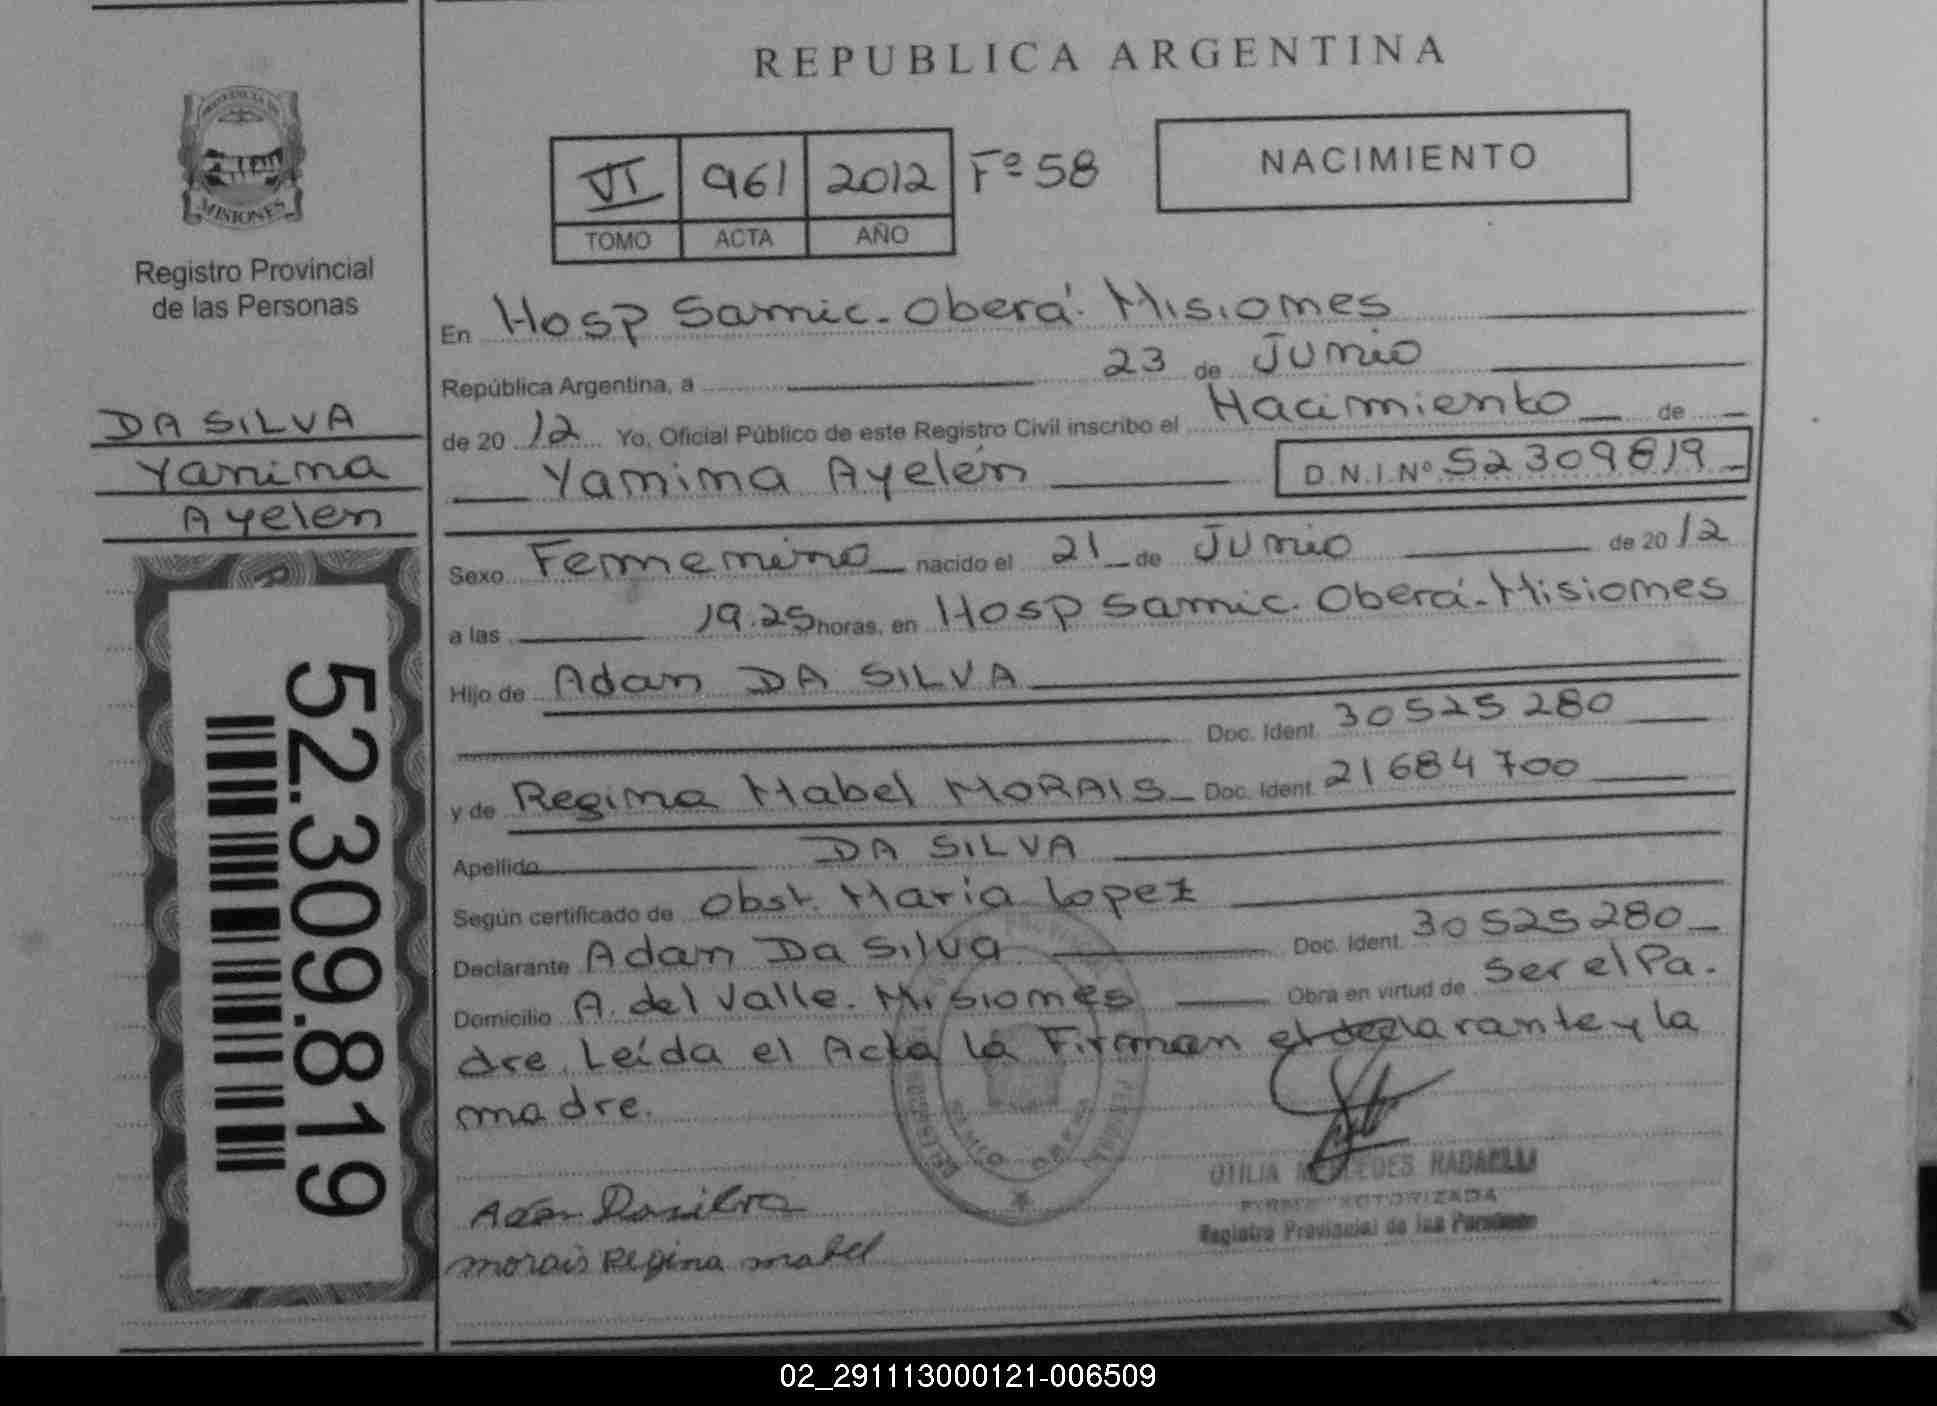 REPUBLICA ARGENTINA
PROVINCIA DE
MISIONES
Registro Provincial
de las Personas
VI 961 2012 Fº 58
TOMO ACTA AÑO
NACIMIENTO
DA SILVA
Yanina
Ayelen
52.309.819
En Hosp Samic. Oberá. Misiones
República Argentina, a 23 de Junio
de 2012 Yo, Oficial Público de este Registro Civil inscribo el Nacimiento de
Yanina Ayelén D.N.I.Nº 52309819
Sexo Femenino nacido el 21 de Junio de 2012
a las 19.25 horas, en Hosp Samic. Oberá. Misiones
Hijo de Adan DA SILVA
Doc. Ident. 30525280
y de Regina Mabel MORAIS Doc. Ident. 21684700
Apellido DA SILVA
Según certificado de Obst. Maria Lopez
Declarante Adan Da Silva Doc. Ident. 30525280
Domicilio A. del Valle. Misiones Obra en virtud de Ser el Pa.
dre. Leída el Acta la Firman el declarante y la
madre.
Adan Dasilva
morais Regina mabel
OTILIA MERCEDES RADAELLI
FIRMA AUTORIZADA
Registro Provincial de las Personas
02_291113000121-006509